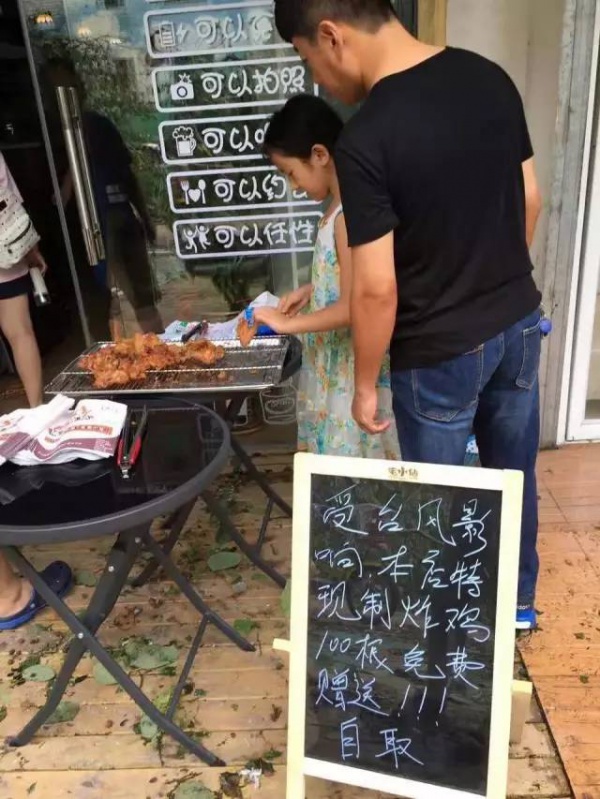 可以
可以拍照
可以
可以约
可以任性
宅小仙
受台风影
响,本店特
现制炸鸡
100板免费
赠送!!!
自取